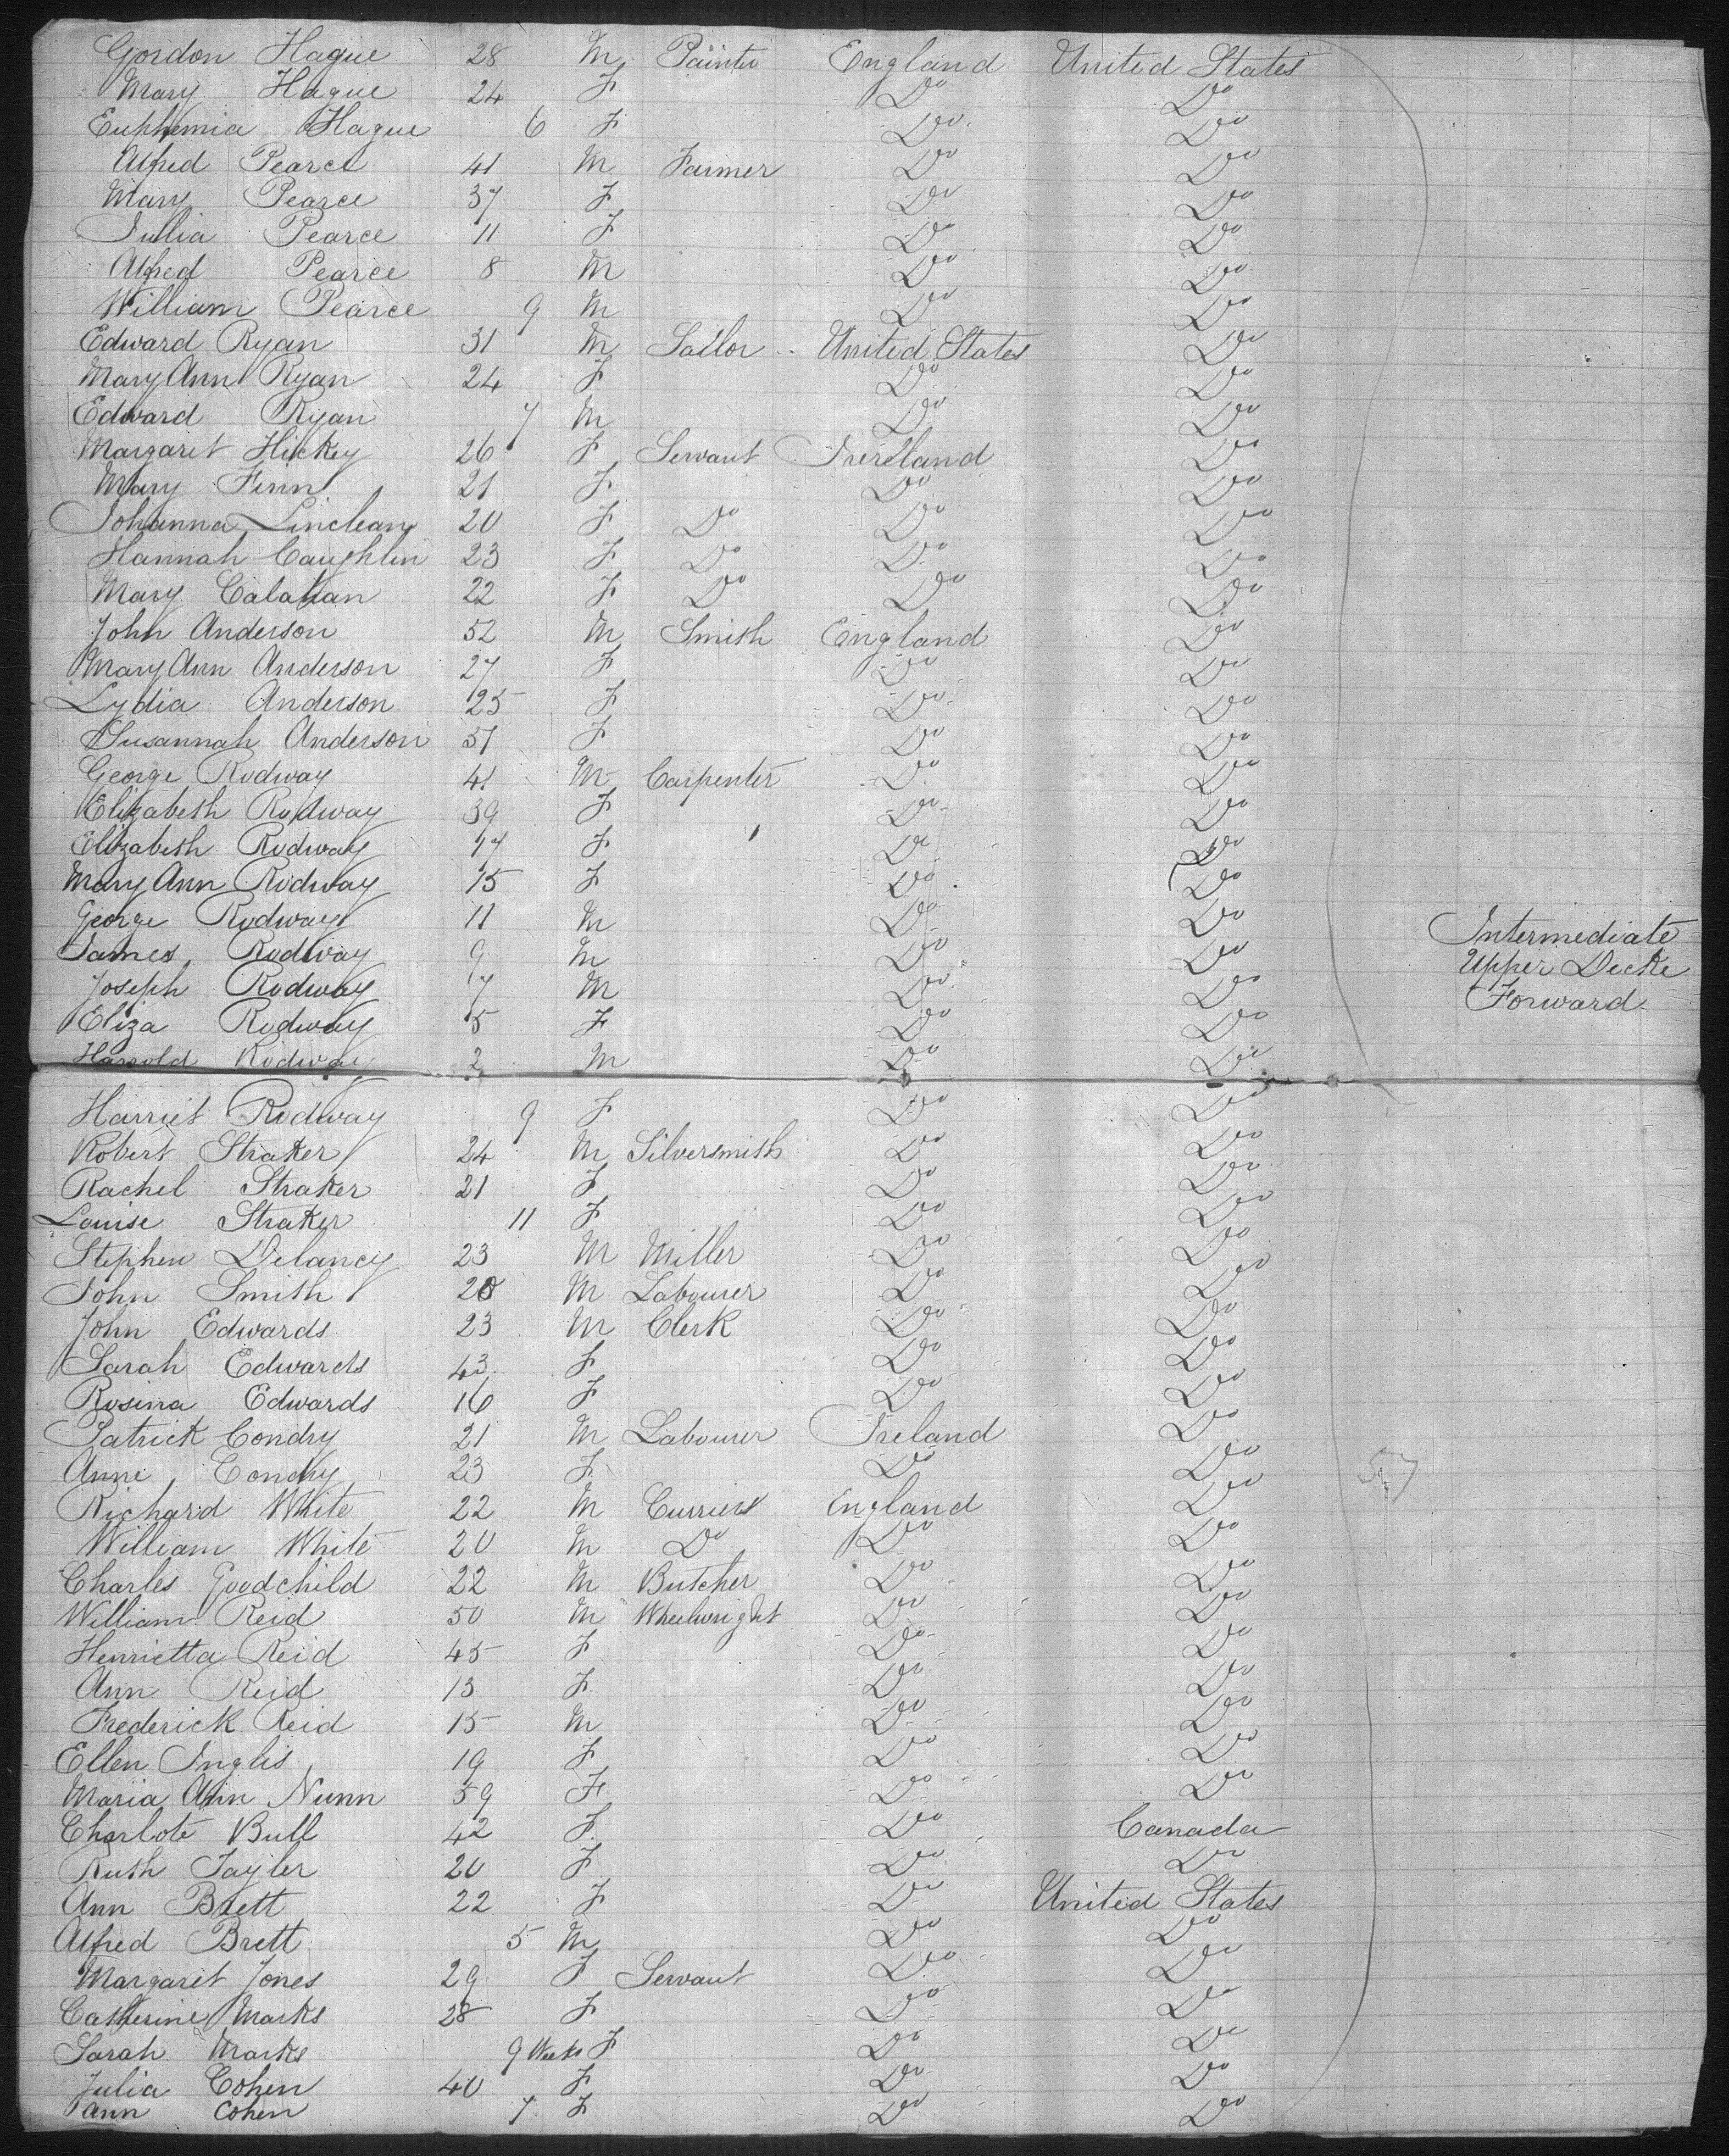 Gordon Hague 28 M Painter England United States
Mary Hague 24 F Do Do
Euphemia Hague 6 F Do Do
Alfred Pearce 41 M Farmer Do Do
Mary Pearce 37 F Do Do
Julia Pearce 11 F Do Do
Alfred Pearce 8 M Do Do
William Pearce 9 M Do Do
Edward Ryan 31 M Sailor United States Do
Mary Ann Ryan 24 F Do Do
Edward Ryan 7 M Do Do
Margaret Hickey 26 F Servant Ireland Do
Mary Finn 21 F Do Do
Johanna 20 F Do Do Do
Hannah Caughlin 23 F Do Do Do
Mary Calahan 22 F Do Do Do
John Anderson 52 M Smith England Do
Mary Ann Anderson 27 F Do Do
Lydia Anderson 25 F Do Do
Susannah Anderson F Do Do
George Rodway 41 M Carpenter Do Do
Elizabeth Rodway 39 F Do Do
Elizabeth Rodway 17 F Do Do
Mary Ann Rodway 15 F Do Do
George Rodway 11 M Do Do
Intermediate
James Rodway 9 M Do Do
Upper Decke
Joseph Rodway 7 M Do Do
Forward
Eliza Rodway 5 F Do Do
Harrold Rodway 2 M Do Do
Harriet Rodway 9 F Do Do
Robert Straker 24 M Silversmith Do Do
Rachel Straker 21 F Do Do
Louise Straker 11 F Do Do
Stephen Delancy 23 M Miller Do Do
John Smith 28 M Labourer Do Do
John Edwards 23 M Clerk Do Do
Sarah Edwards 43 F Do Do
Rosina Edwards 16 F Do Do
Patrick Condry 21 M Labourer Ireland Do
Anne Condry 23 F Do Do
57
Richard White 22 M Curriers England Do
William White 20 M Do Do Do
Charles Goodchild 22 M Butcher Do Do
William Reid 50 M Wheelwright Do Do
Henrietta Reid 45 F Do Do
Ann Reid 13 F Do Do
Frederick Reid 15 M Do Do
Ellen Inglis 19 F Do Do
Maria Ann Nunn 59 F Do Do
Charlote Bull 42 F Do Canada
Ruth Tayler 20 F Do Do
Ann Brett 22 F Do United States
Alfred Brett 5 M Do Do
Margaret Jones 29 F Servant Do Do
Catherine Marks 28 F Do Do
Sarah Marks 9 Weeks F Do Do
Julia Cohen 40 F Do Do
Ann Cohen 7 F Do Do